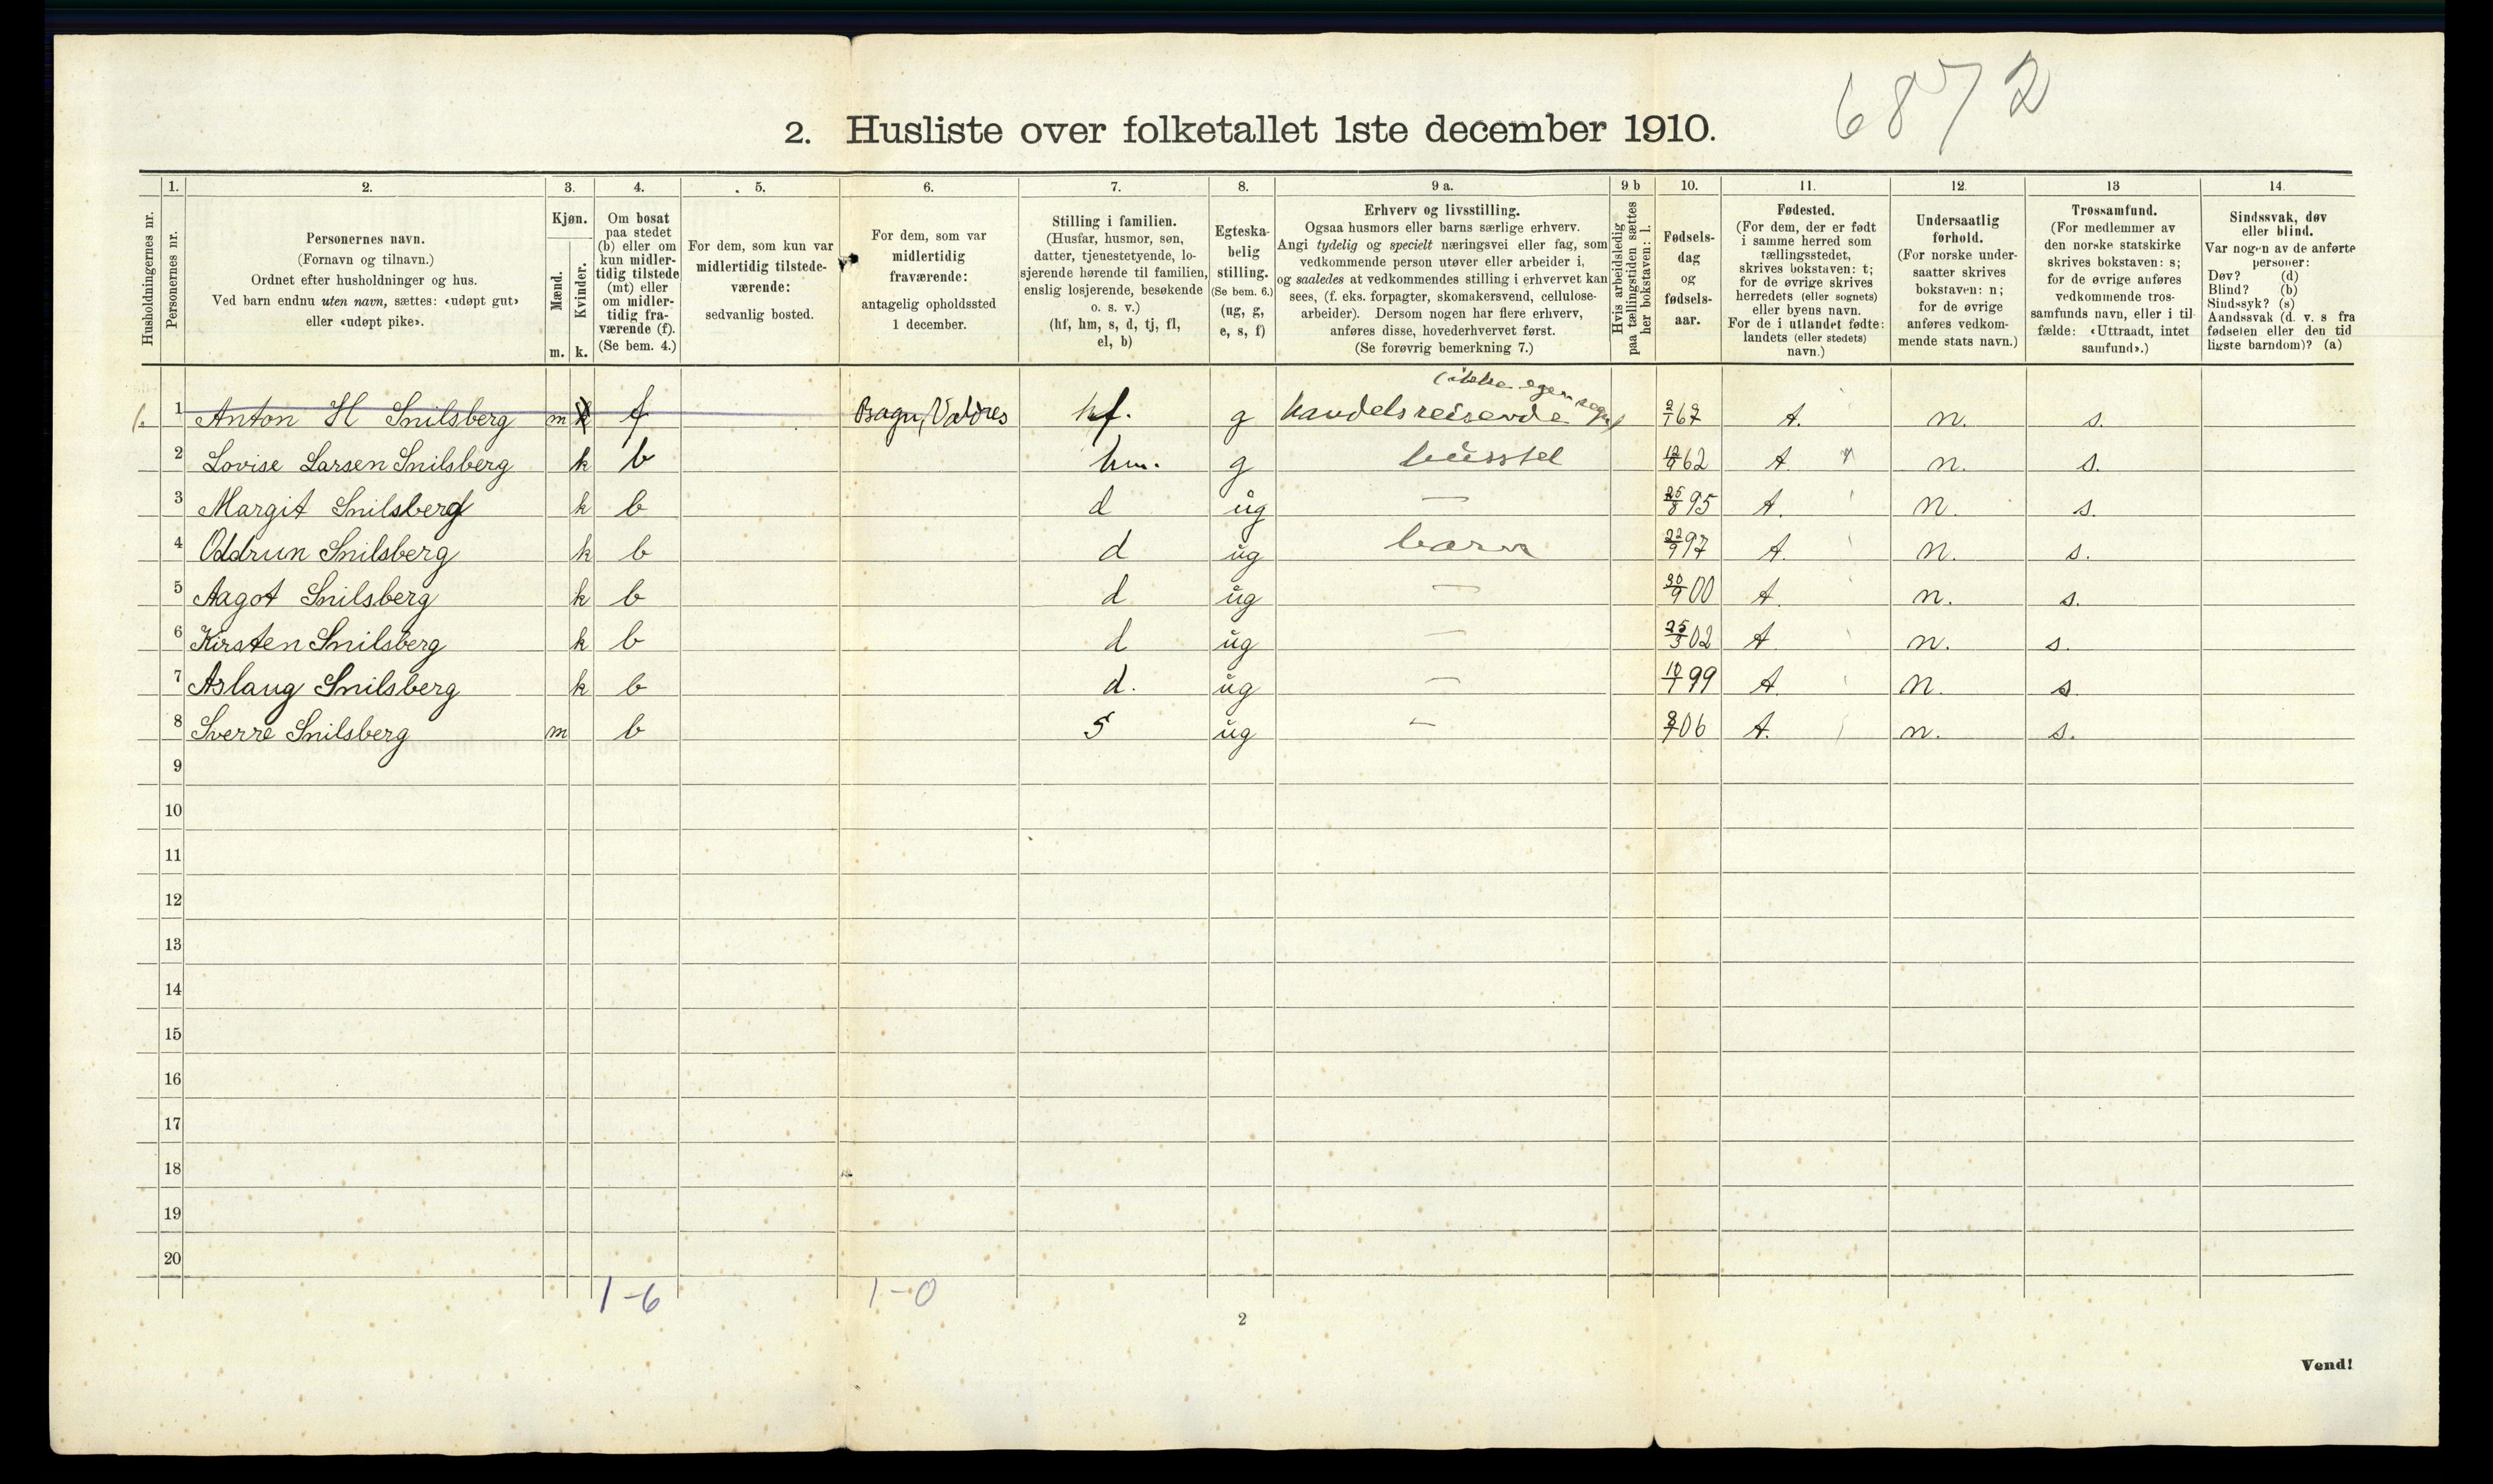 6872
2. Husliste over folketallet 1ste december 1910.
1. 2. 3. 4. 5. 6. 7. 8. 9 a. 9 b 10. 11. 12. 13 14.
Husholdningernes nr.
Personernes nr.
Personernes navn.
(Fornavn og tilnavn.)
Ordnet efter husholdninger og hus.
Ved barn endnu uten navn, sættes: «udøpt gut»
eller «udøpt pike».
Kjøn.
Mænd.
Kvinder.
m. k.
Om bosat
paa stedet
(b) eller om
kun midler-
tidig tilstede
(mt) eller
om midler-
tidig fra-
værende (f).
(Se bem. 4.)
For dem, som kun var
midlertidig tilstede-
værende:
sedvanlig bosted.
For dem, som var
midlertidig
fraværende:
antagelig opholdssted
1 december.
Stilling i familien.
(Husfar, husmor, søn,
datter, tjenestetyende, lo-
sjerende hørende til familien,
enslig losjerende, besøkende
o. s. v.)
(hf, hm, s, d, tj, fl,
el, b)
Egteska-
belig
stilling.
(Se bem. 6.)
(ug, g,
e, s, f)
Erhverv og livsstilling.
Ogsaa husmors eller barns særlige erhverv.
Angi tydelig og specielt næringsvei eller fag, som
vedkommende person utøver eller arbeider i,
og saaledes at vedkommendes stilling i erhvervet kan
sees, (f. eks. forpagter, skomakersvend, cellulose-
arbeider). Dersom nogen har flere erhverv,
anføres disse, hovederhvervet først.
(Se forøvrig bemerkning 7.)
Hvis arbeidsledig
paa tællingstiden sættes
her bokstaven: l.
Fødsels-
dag
og
fødsels-
aar.
Fødested.
(For dem, der er født
i samme herred som
tællingsstedet,
skrives bokstaven: t;
for de øvrige skrives
herredets (eller sognets)
eller byens navn.
For de i utlandet fødte:
landets (eller stedets)
navn.)
Undersaatlig
forhold.
(For norske under-
saatter skrives
bokstaven: n;
for de øvrige
anføres vedkom-
mende stats navn.)
Trossamfund.
(For medlemmer av
den norske statskirke
skrives bokstaven: s;
for de øvrige anføres
vedkommende tros-
samfunds navn, eller i til-
fælde: «Uttraadt, intet
samfund».)
Sindssvak, døv
eller blind.
Var nogen av de anførte
personer:
Døv? (d)
Blind? (b)
Sindssyk? (s)
Aandssvak (d. v. s fra
fødselen eller den tid
ligste barndom)? (a)
1. 1 Anton H Snilsberg m f Bagn, Valdres hf. g handelsreisende (ikke egen regn) 2/1 67 t. n. s.
2 Lovise Larsen Snilsberg k b hm. g husstel 12/9 62 t n. s.
3 Margit Snilsberg k b d ug — 25/8 95 t. n. s.
4 Oddrun Snilsberg k b d ug barn 22/9 97 t. n. s.
5 Aagot Snilsberg k b d ug — 30/9 00 t. n. s.
6 Kirsten Snilsberg k b d ug — 25/3 02 t n. s.
7 Aslaug Snilsberg k b d. ug — 10/1 99 t. n. s
8 Sverre Snilsberg m b s ug — 8/7 06 t. n. s.
9
10
11
12
13
14
15
16
17
18
19
20
1-6 1-0
2
Vend!